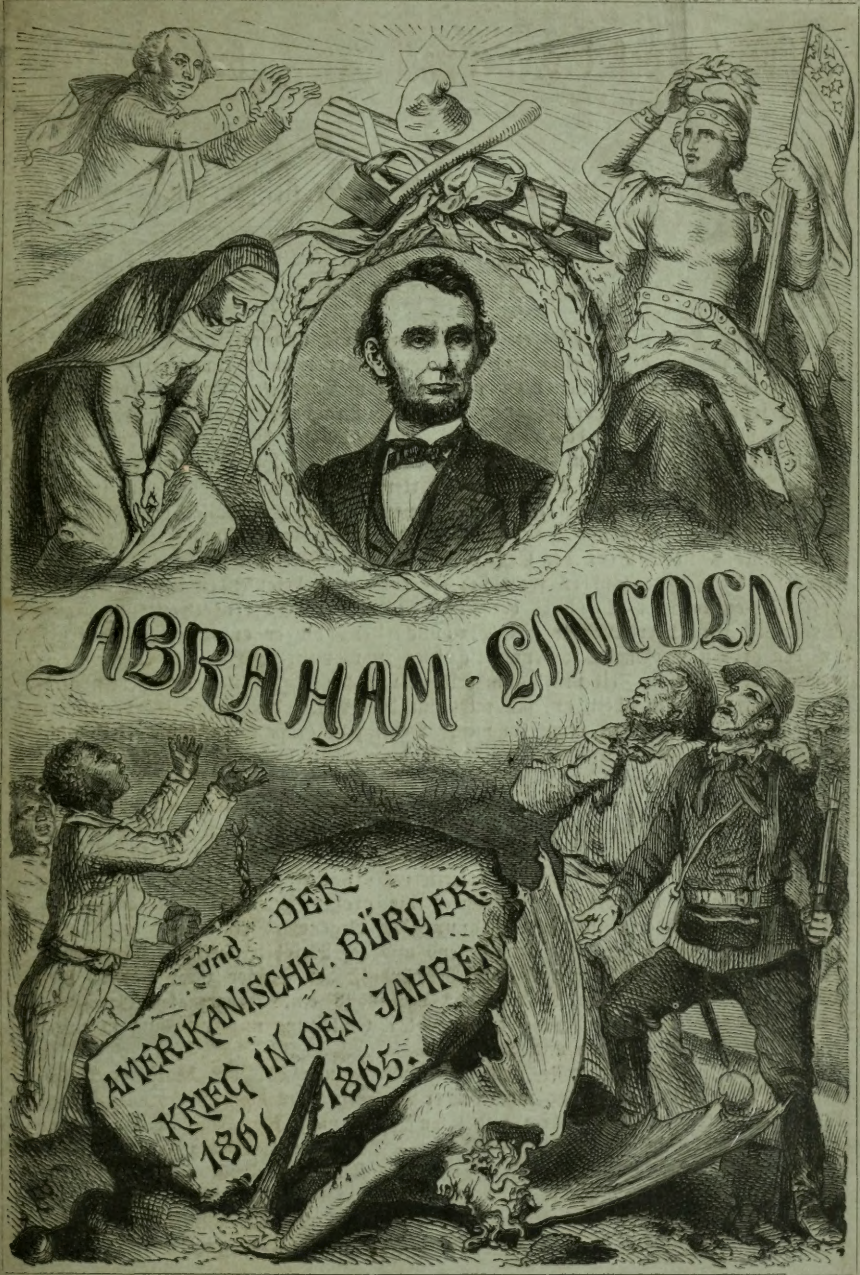 ABRAHAM · LINCOLN
und DER
AMERIKANISCHE · BÜRGER-
KRIEG IN DEN JAHREN
1861 1865.